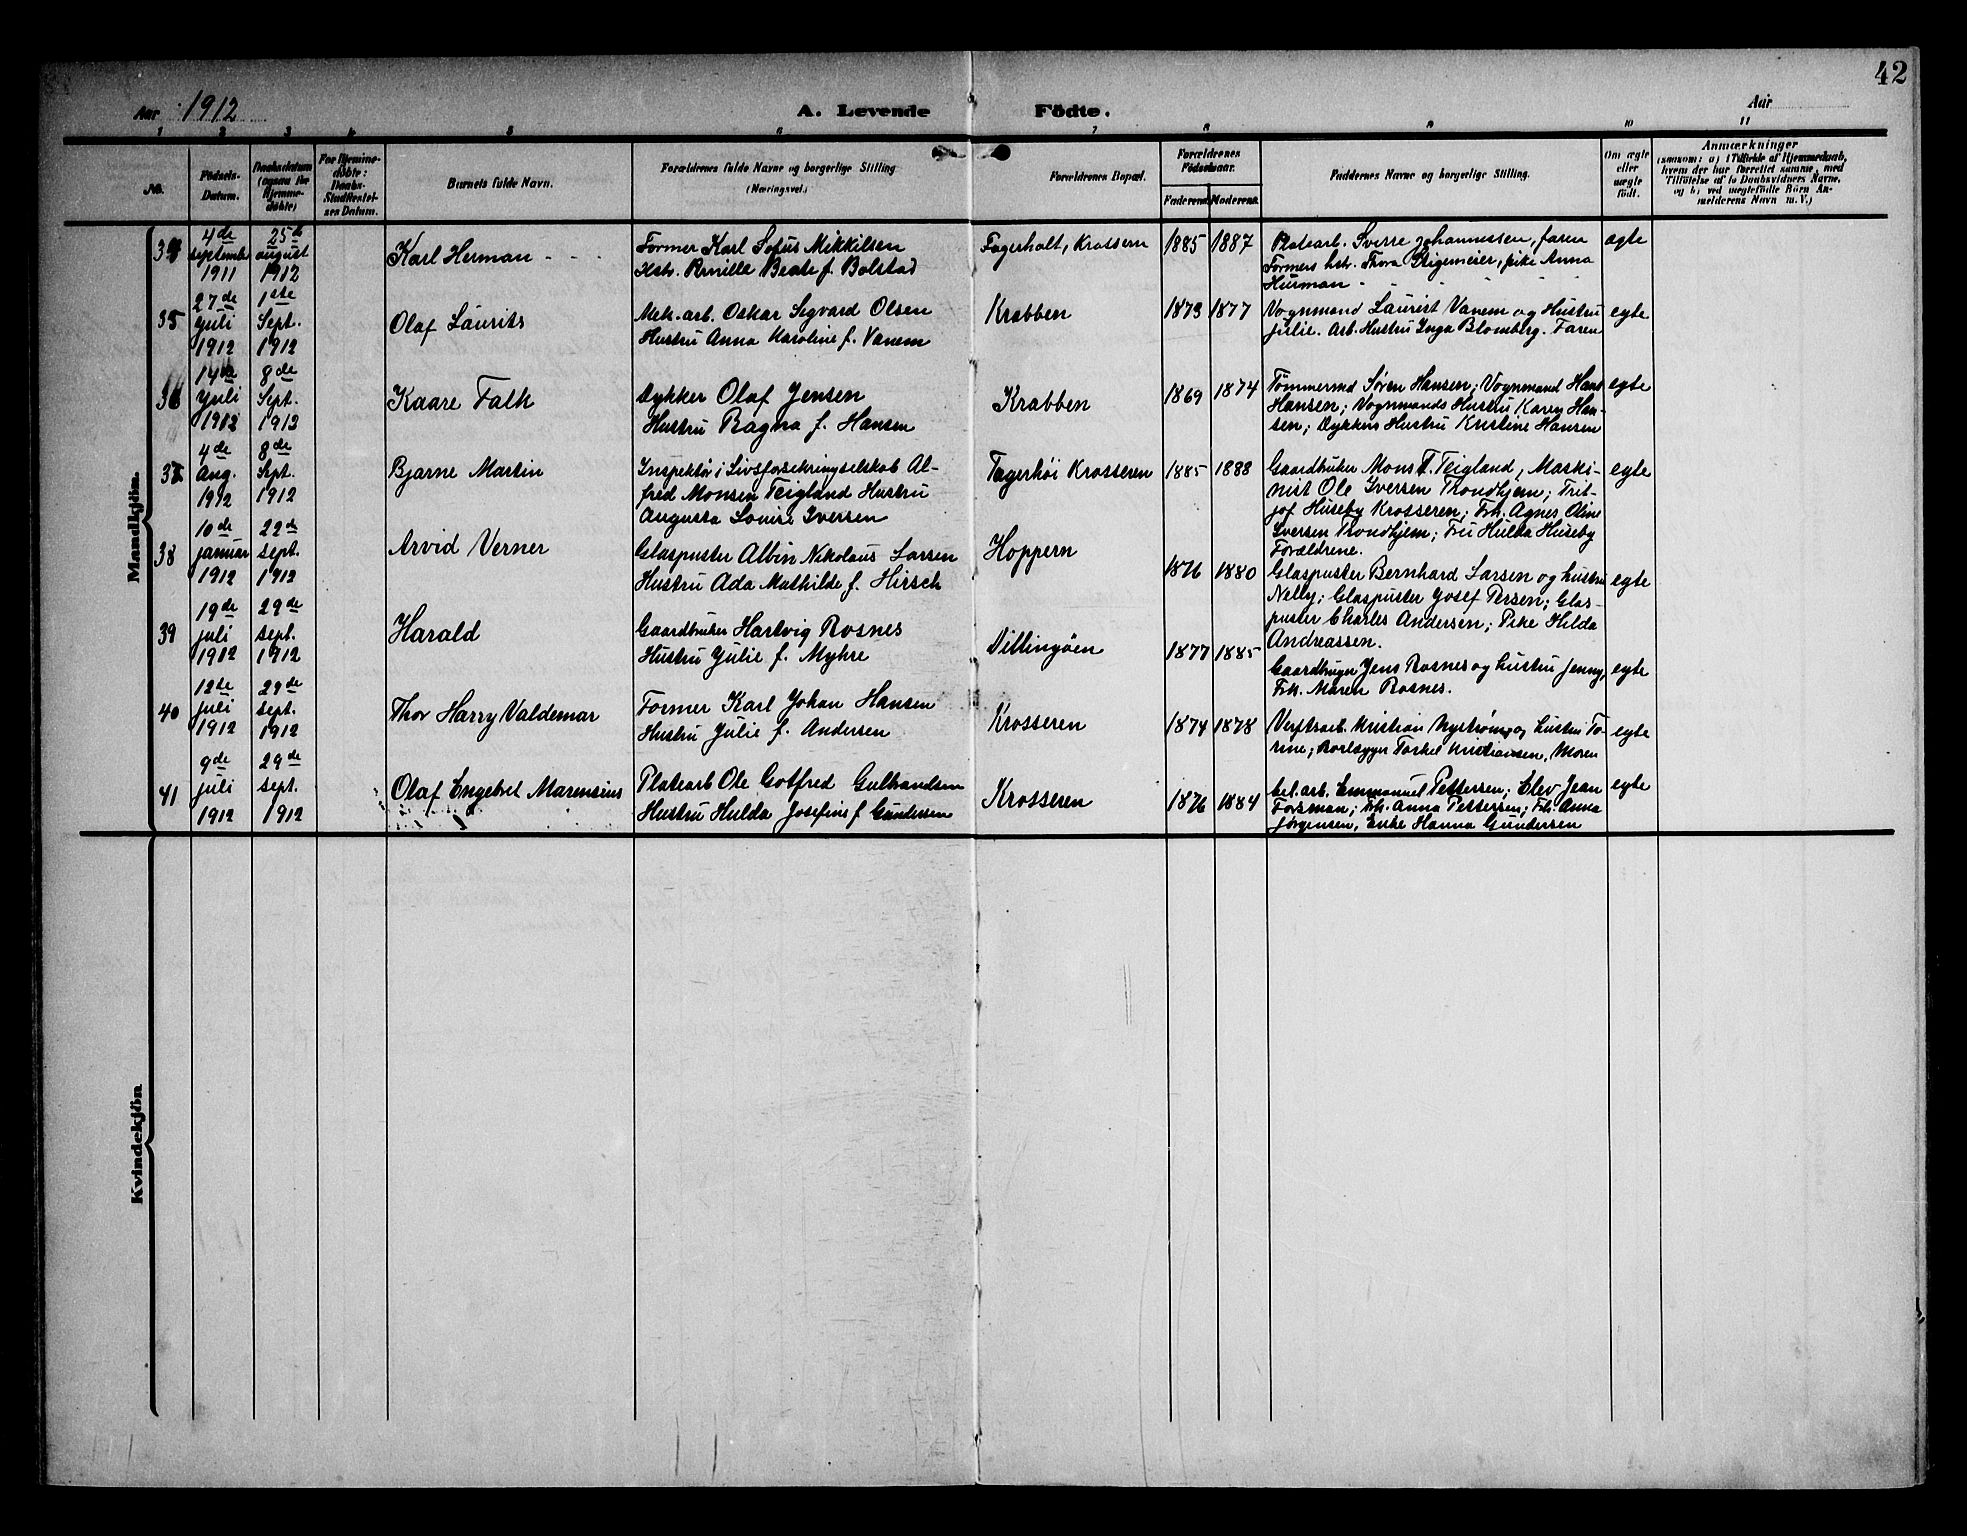 42
Aar 1912
A. Levende Födte.
Aar
1 2 3 4 5 6 7 8 9 10 11
No.
Födsels-
Datum.
Daabsdatum
(ogsaa for
Hjemme-
döbte)
For Hjemme-
döbte:
Daabs-
Stadfæstel-
sens Datum.
Barnets fulde Navn.
Forældrenes fulde Navne og borgerlige Stilling
(Næringsvei.)
Forældrenes Bopæl.
Forældrenes
Födselsaar.
Faderens
Moderens
Faddernes Navne og borgerlige Stilling.
Om ægte
eller
uægte
født.
Anmærkninger
(saasom: a) i Tilfælde af Hjemmedaab,
hvem der har forrettet samme, med
Tilføielse af to Daabsvidners Navne,
og b) ved uægtefødte Börn An-
melderens Navn m. V.)
Mandkjön.
34
4de
septembe
1911
25de
august
1912
Karl Herman
Former Karl Sofus Mikkilsen
Hstr. Pernille Beate f. Bolstad
Fagerholt, Krossern
1885 1887
Platearb. Sverre Johannessen, faren
Formers hstr. Thora Stigemeier, pike Anna
Hurman
ægte
35
27de
Juli
1912
1ste
Sept.
1912
Olaf Laurits
Mek. arb. Oskar Segvard Olsen
Hustru Anna Karoline f. Vanem
Krabben
1873 1877
Vognmand Laurist Vanem og Hustru
Julie. Arb. Hustru Inga Blomberg. Faren
egte
36
14de
Juli
1912
8de
Sept.
1912
Kaare Falk
Dykker Olaf Jensen
Hustru Ragna f. Hansen
Krabben
1869 1874
Tømmermd Søren Hansen; Vognmand Hans
Hansen; Vognmands Hustru Karen Han-
sen; Dykkers Hustru Kristine Hansen
egte
37
4de
Aug.
1912
8de
Sept.
1912
Bjarne Martin
Inspektør i Livsforsekringselskab Al-
fred Monsen Teigland Hustru
Augusta Louise Iversen
Fagerhøi Krosseren
1885 1888
Gaardbruker Mons T. Teigland, Maski-
nist Ole Iversen Trondhjem; Frit-
jof Huseby Krosseren; Frk. Agnes Oline
Iversen Trondhjem; Fru Hulda Huseby
Forældrene.
egte
38
10de
januar
1912
22de
sept.
1912
Arvid Verner
Glaspuster Albin Nikolaus Larsen
Hustru Ada Mathilde f. Hirsch
Hoppern
1876 1880
Glaspuster Bernhard Larsen og hustru
Nelly; Glaspuster Josef Persen; Glas-
puster Charles Andersen; Pike Hilda
Andreassen.
egte
39
19de
juli
1912
29de
sept.
1912
Harald
Gaardbruker Hartvig Rosnes
Hustru Julie f. Myhre
Dillingøen
1877 1885
Gaardbruger Jens Rosnes og hustru Jenny,
Frk. Maren Rosnes.
egte
40
12te
juli
1912
29de
sept.
1912
Thor Harry Valdemar
Former Karl Johan Hansen
Hustru Julie f. Andersen
Krosseren
1874 1878
Verftsarb. Kristian Nystrøm og hustru To-
rine; Rorlægger Torkel Kristiansen, Moren
egte
41
9de
juli
1912
29de
sept.
1912
Olaf Engebret Marensius
Platearb Ole Gotfred Gulbrandsen
Hustru Hulda Josefine f Gundersen
Krosseren
1876 1884
Cel. arb. Emmanuel Pettersen; Elev Jean
Forsman; Frk. Anna Pettersen; Frk. Anna
Jørgensen, Enke Hanna Gundersen
egte
Kvindekjön